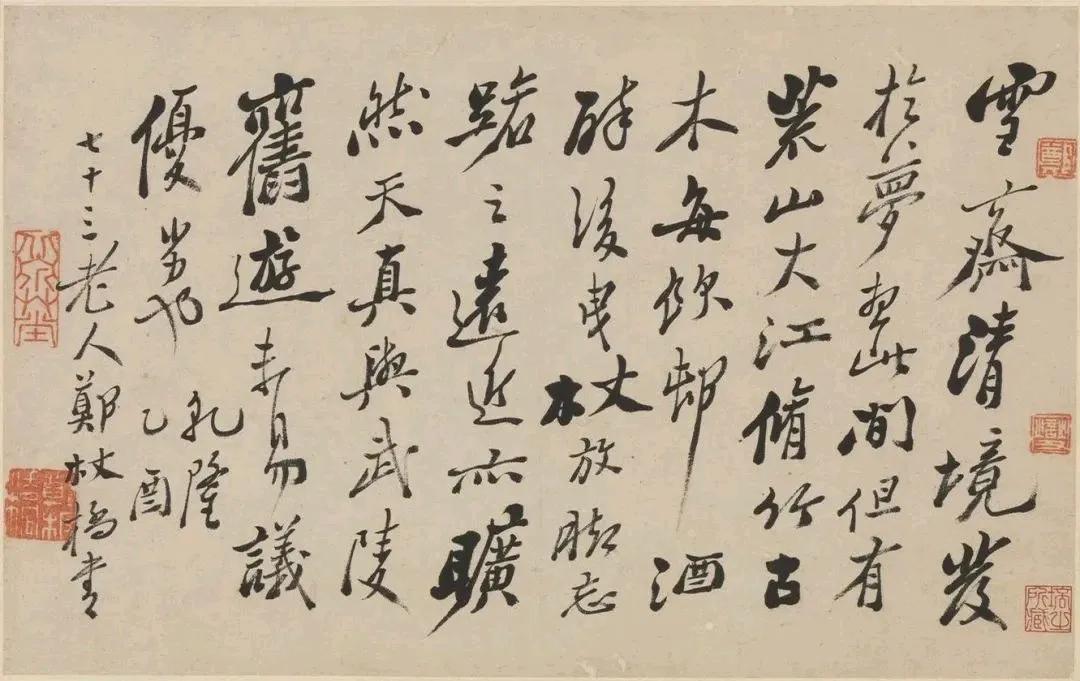 雪齋清境發
於夢想此間但有
荒山大江脩竹古
木每飲邨酒
醉後曳杖放脚忘
路之遠近亦曠
然天真與武陵
舊遊未易議
優劣也
乾隆
乙酉
七十三老人鄭板橋書